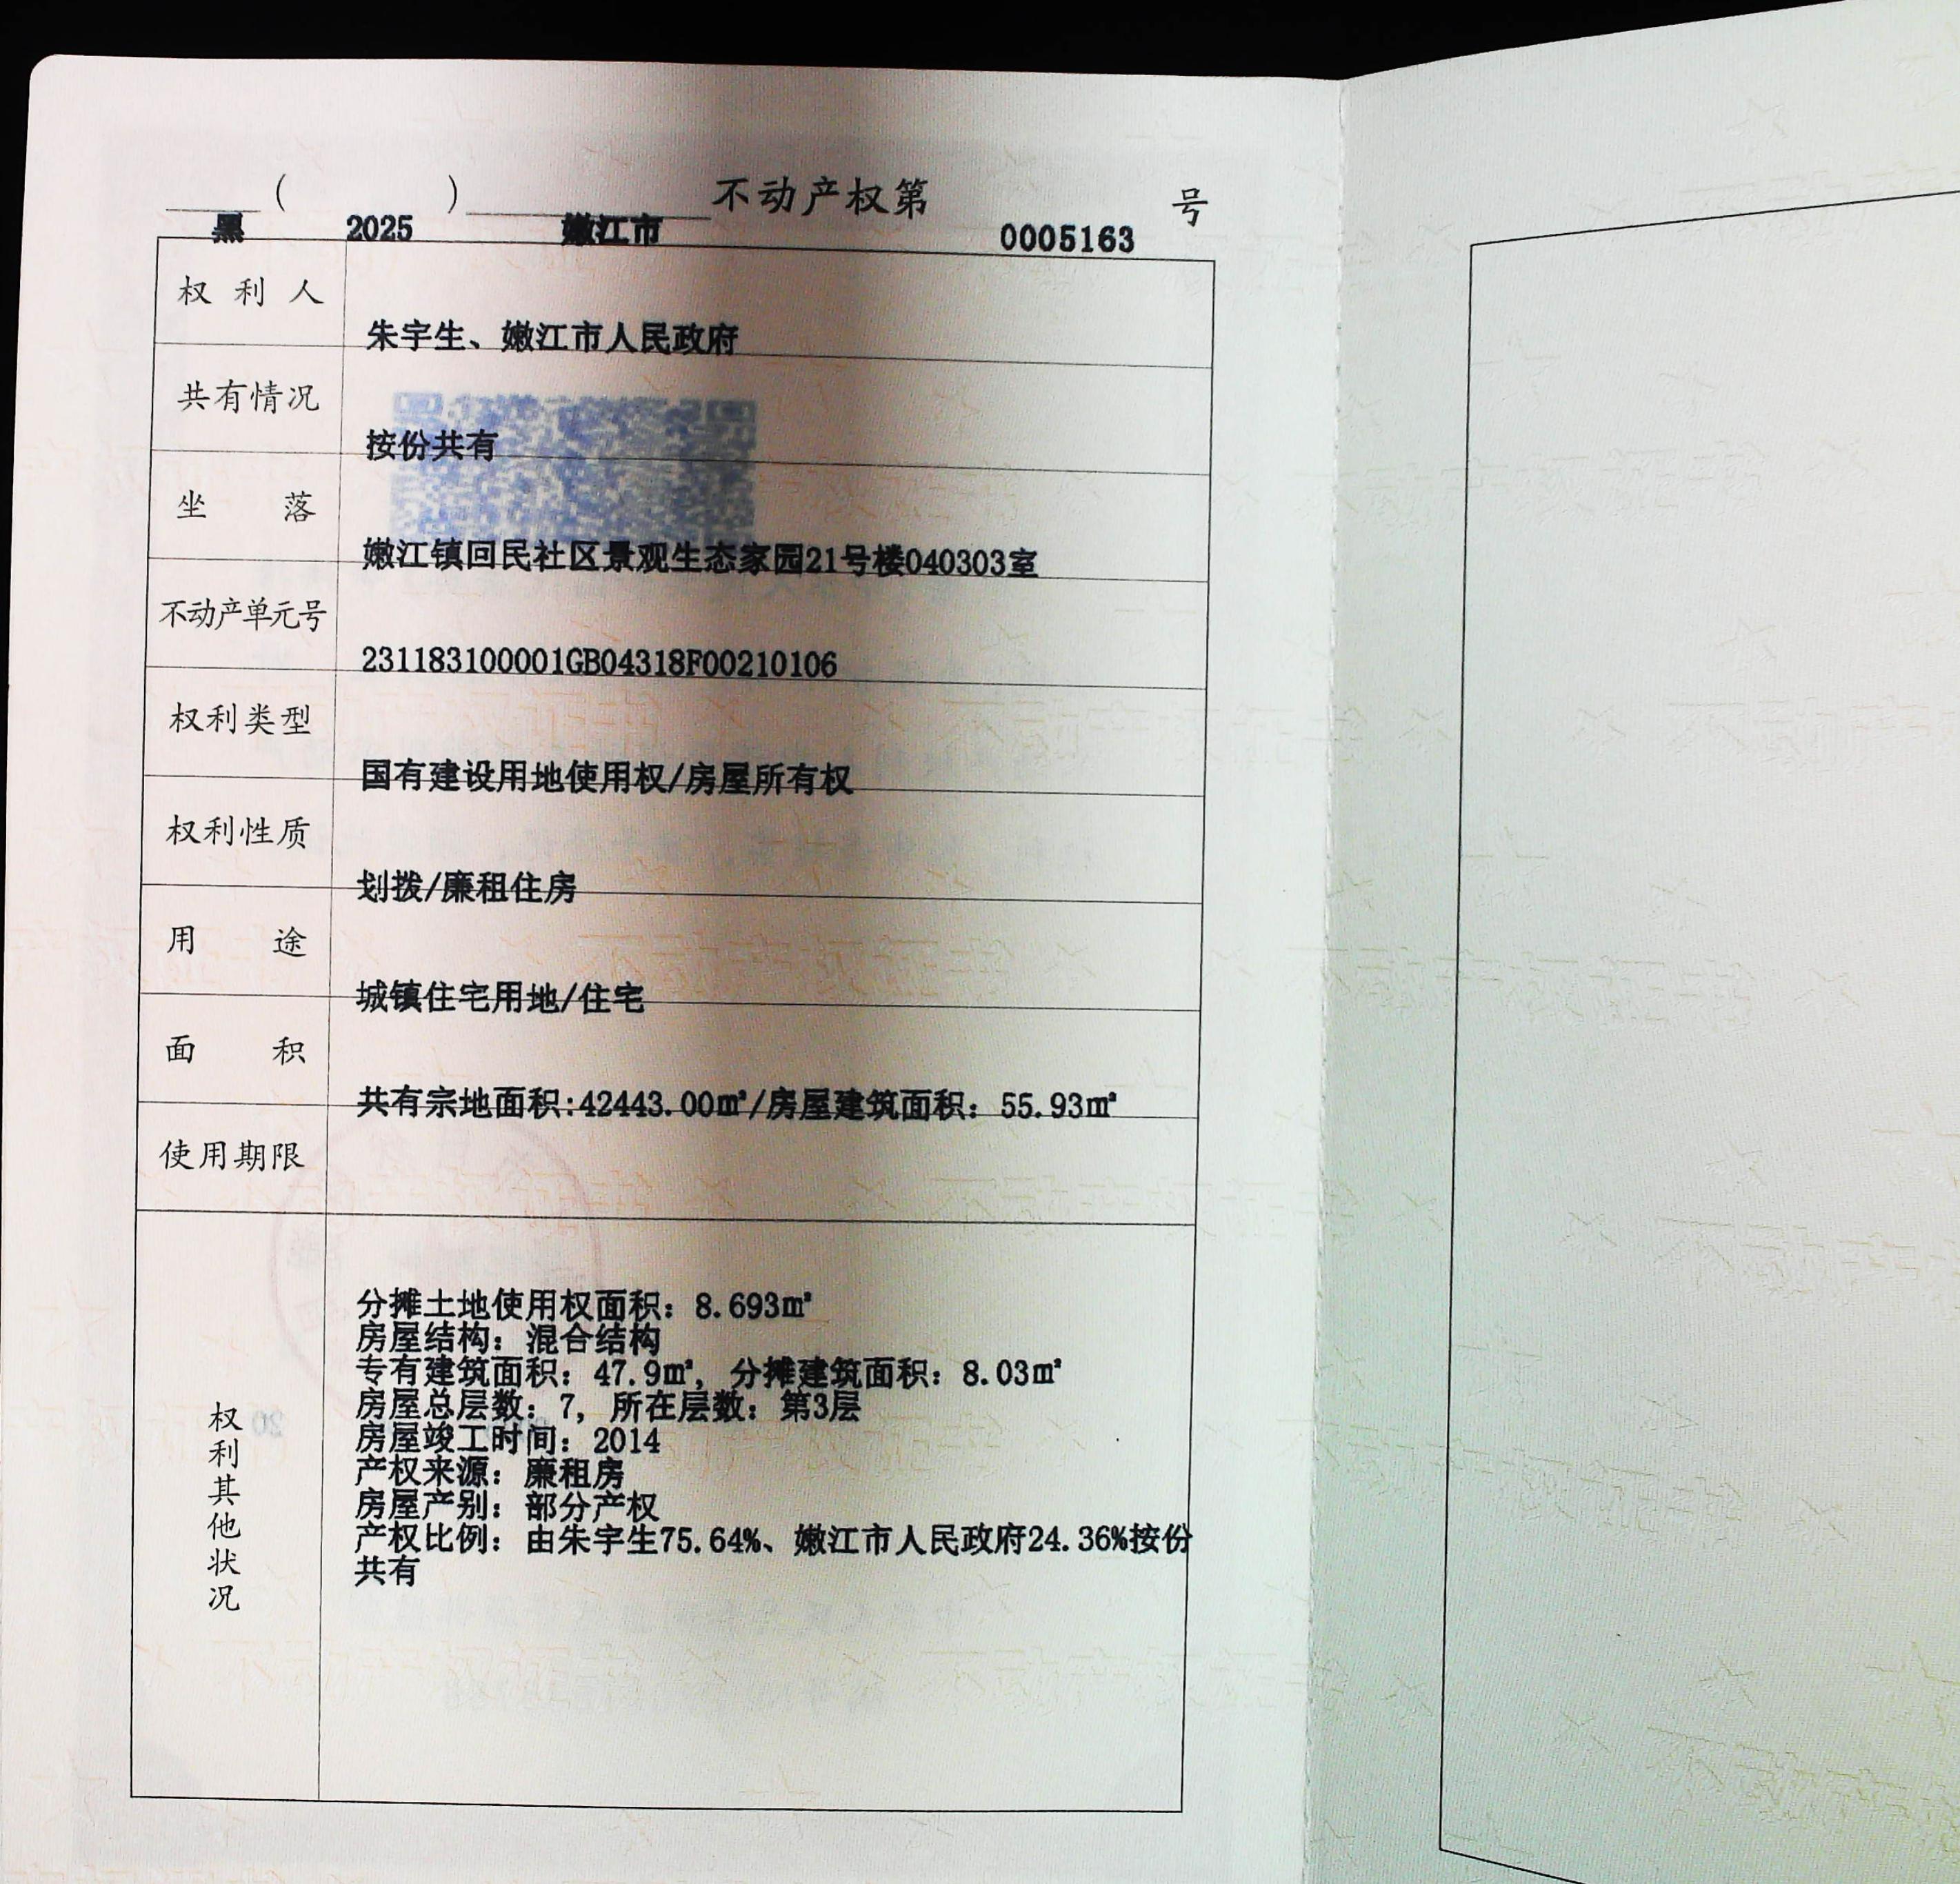 黑(2025)嫩江市不动产权第0005163号
权利人 朱宇生、嫩江市人民政府
共有情况 按份共有
坐落 嫩江镇回民社区景观生态家园21号楼040303室
不动产单元号 231183100001GB04318F00210106
权利类型 国有建设用地使用权/房屋所有权
权利性质 划拨/廉租住房
用途 城镇住宅用地/住宅
面积 共有宗地面积:42443.00㎡/房屋建筑面积：55.93㎡
使用期限
权利其他状况
分摊土地使用权面积：8.693㎡
房屋结构：混合结构
专有建筑面积：47.9㎡，分摊建筑面积：8.03㎡
房屋总层数：7，所在层数：第3层
房屋竣工时间：2014
产权来源：廉租房
房屋产别：部分产权
产权比例：由朱宇生75.64%、嫩江市人民政府24.36%按份
共有